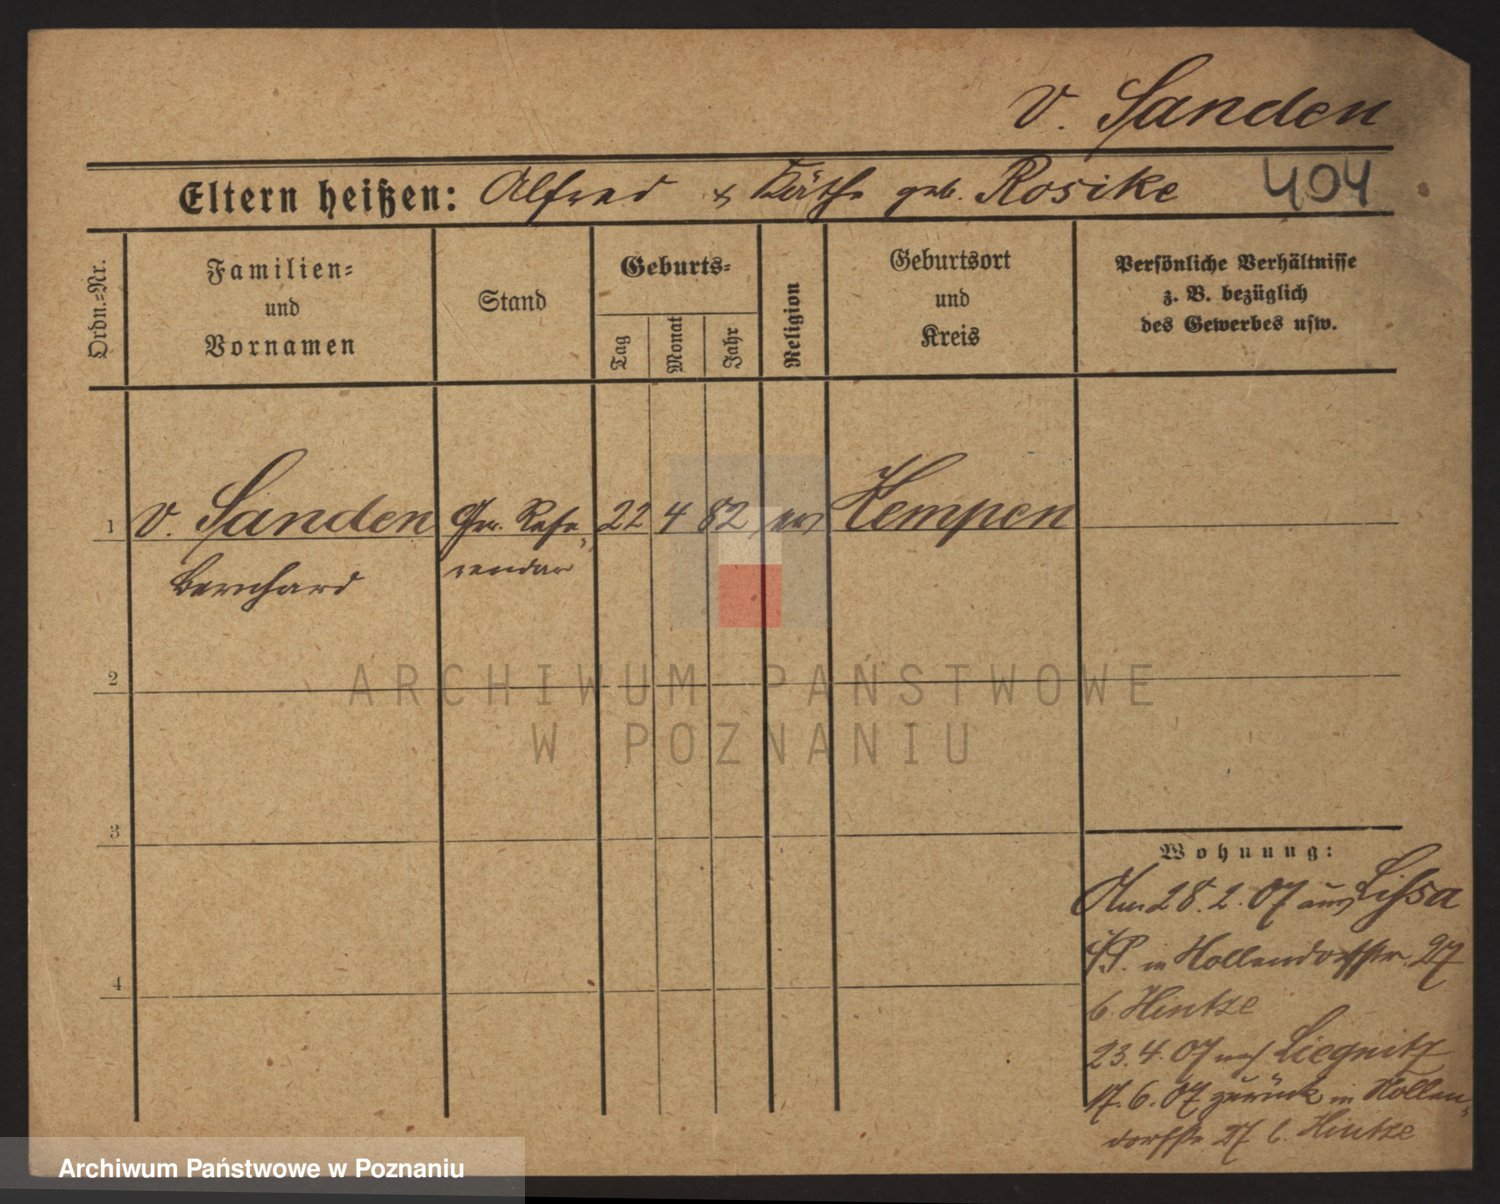 v. Sanden
Eltern heißen: Alfred & Käthe geb. Rosike 404
Ordn.=Nr.
Familien=
und
Vornamen
Stand
Geburts=
Tag
Monat
Jahr
Religion
Geburtsort
und
Kreis
Persönliche Verhältnisse
z. B. bezüglich
des Gewerbes usw.
1 v. Sanden Refe- 22 4 82 ev Kempen
Bernhard rendar
2
ARCHIWUM PAŃSTWOWE
W POZNANIU
3
4
Wohnung:
Am 28.2.07 aus Lissa
i/P. in Hollendorffstr. 27
b. Hintze
23.4.07 nach Liegnitz
17.6.07 zurück in Hollen-
dorffstr. 27 b. Hintze
Archiwum Państwowe w Poznaniu